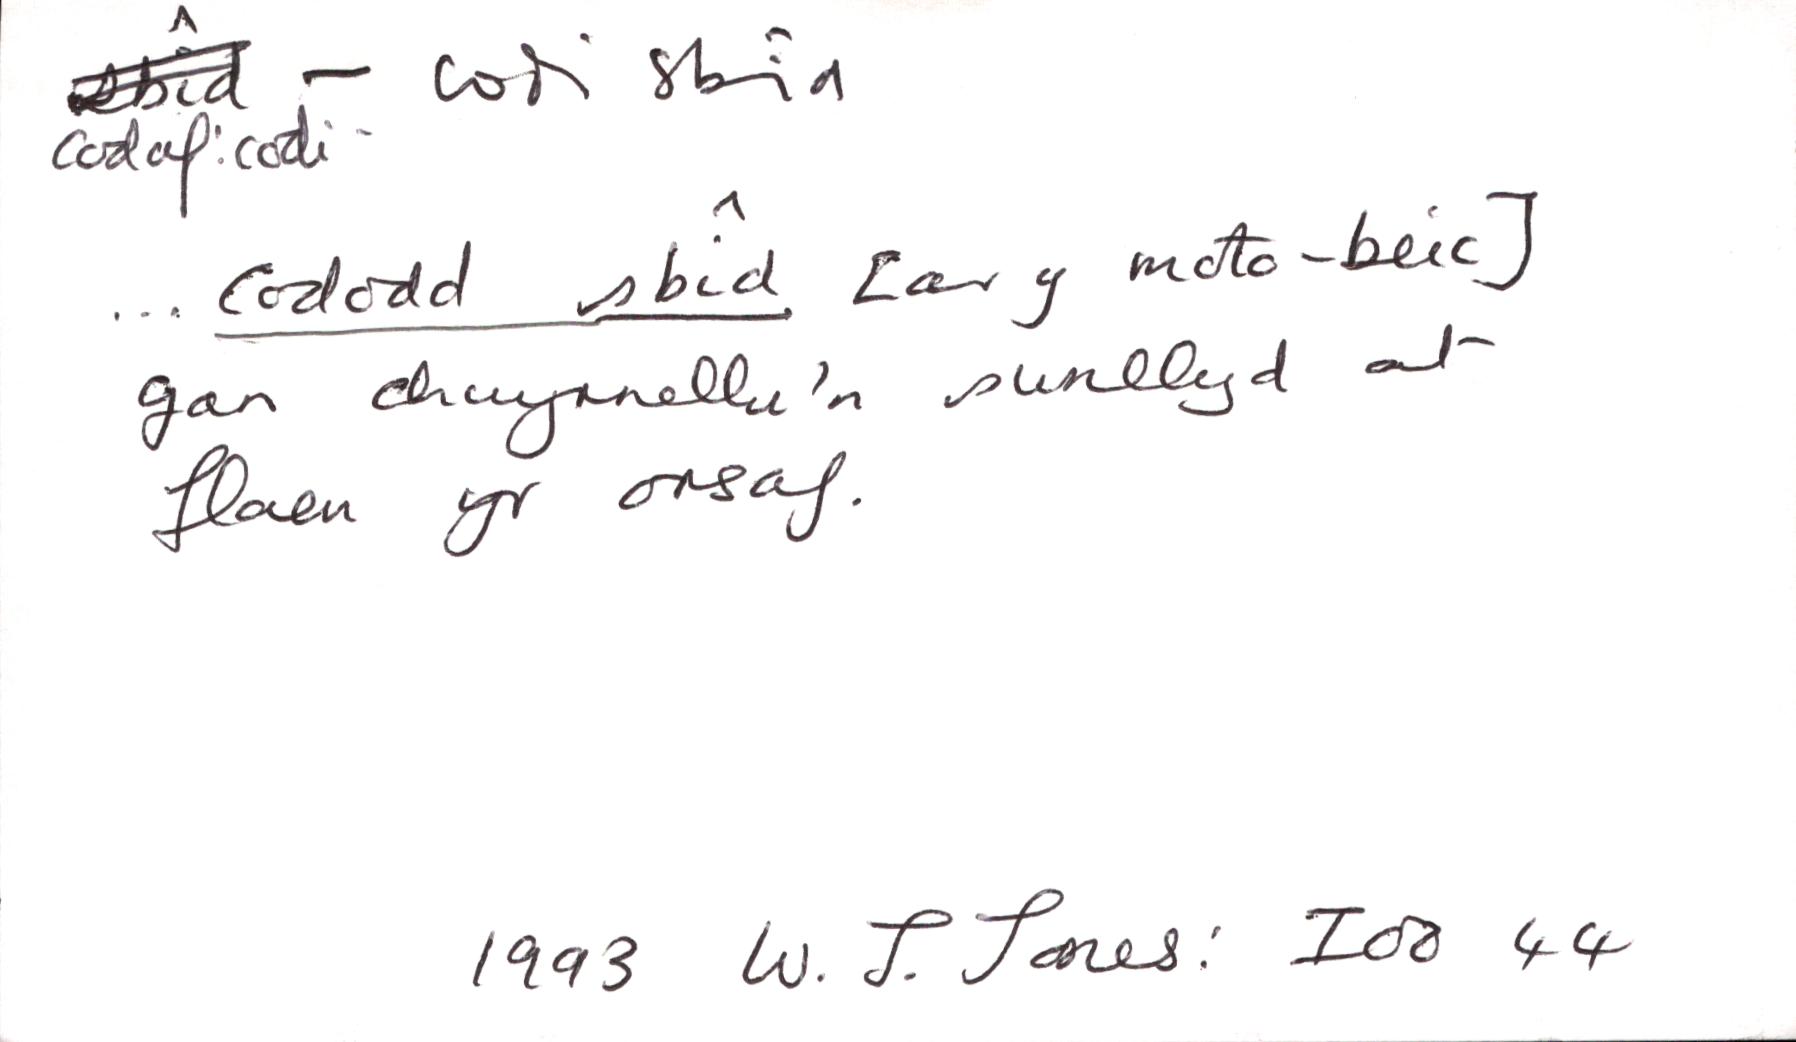 sbîd – codi sbîd
codaf: codi -
... cododd sbîd [ar y moto-beic]
gan chwyrnellu'n sunllyd at
flaen yr orsaf.
1993 W. J. Jones: IOO 44